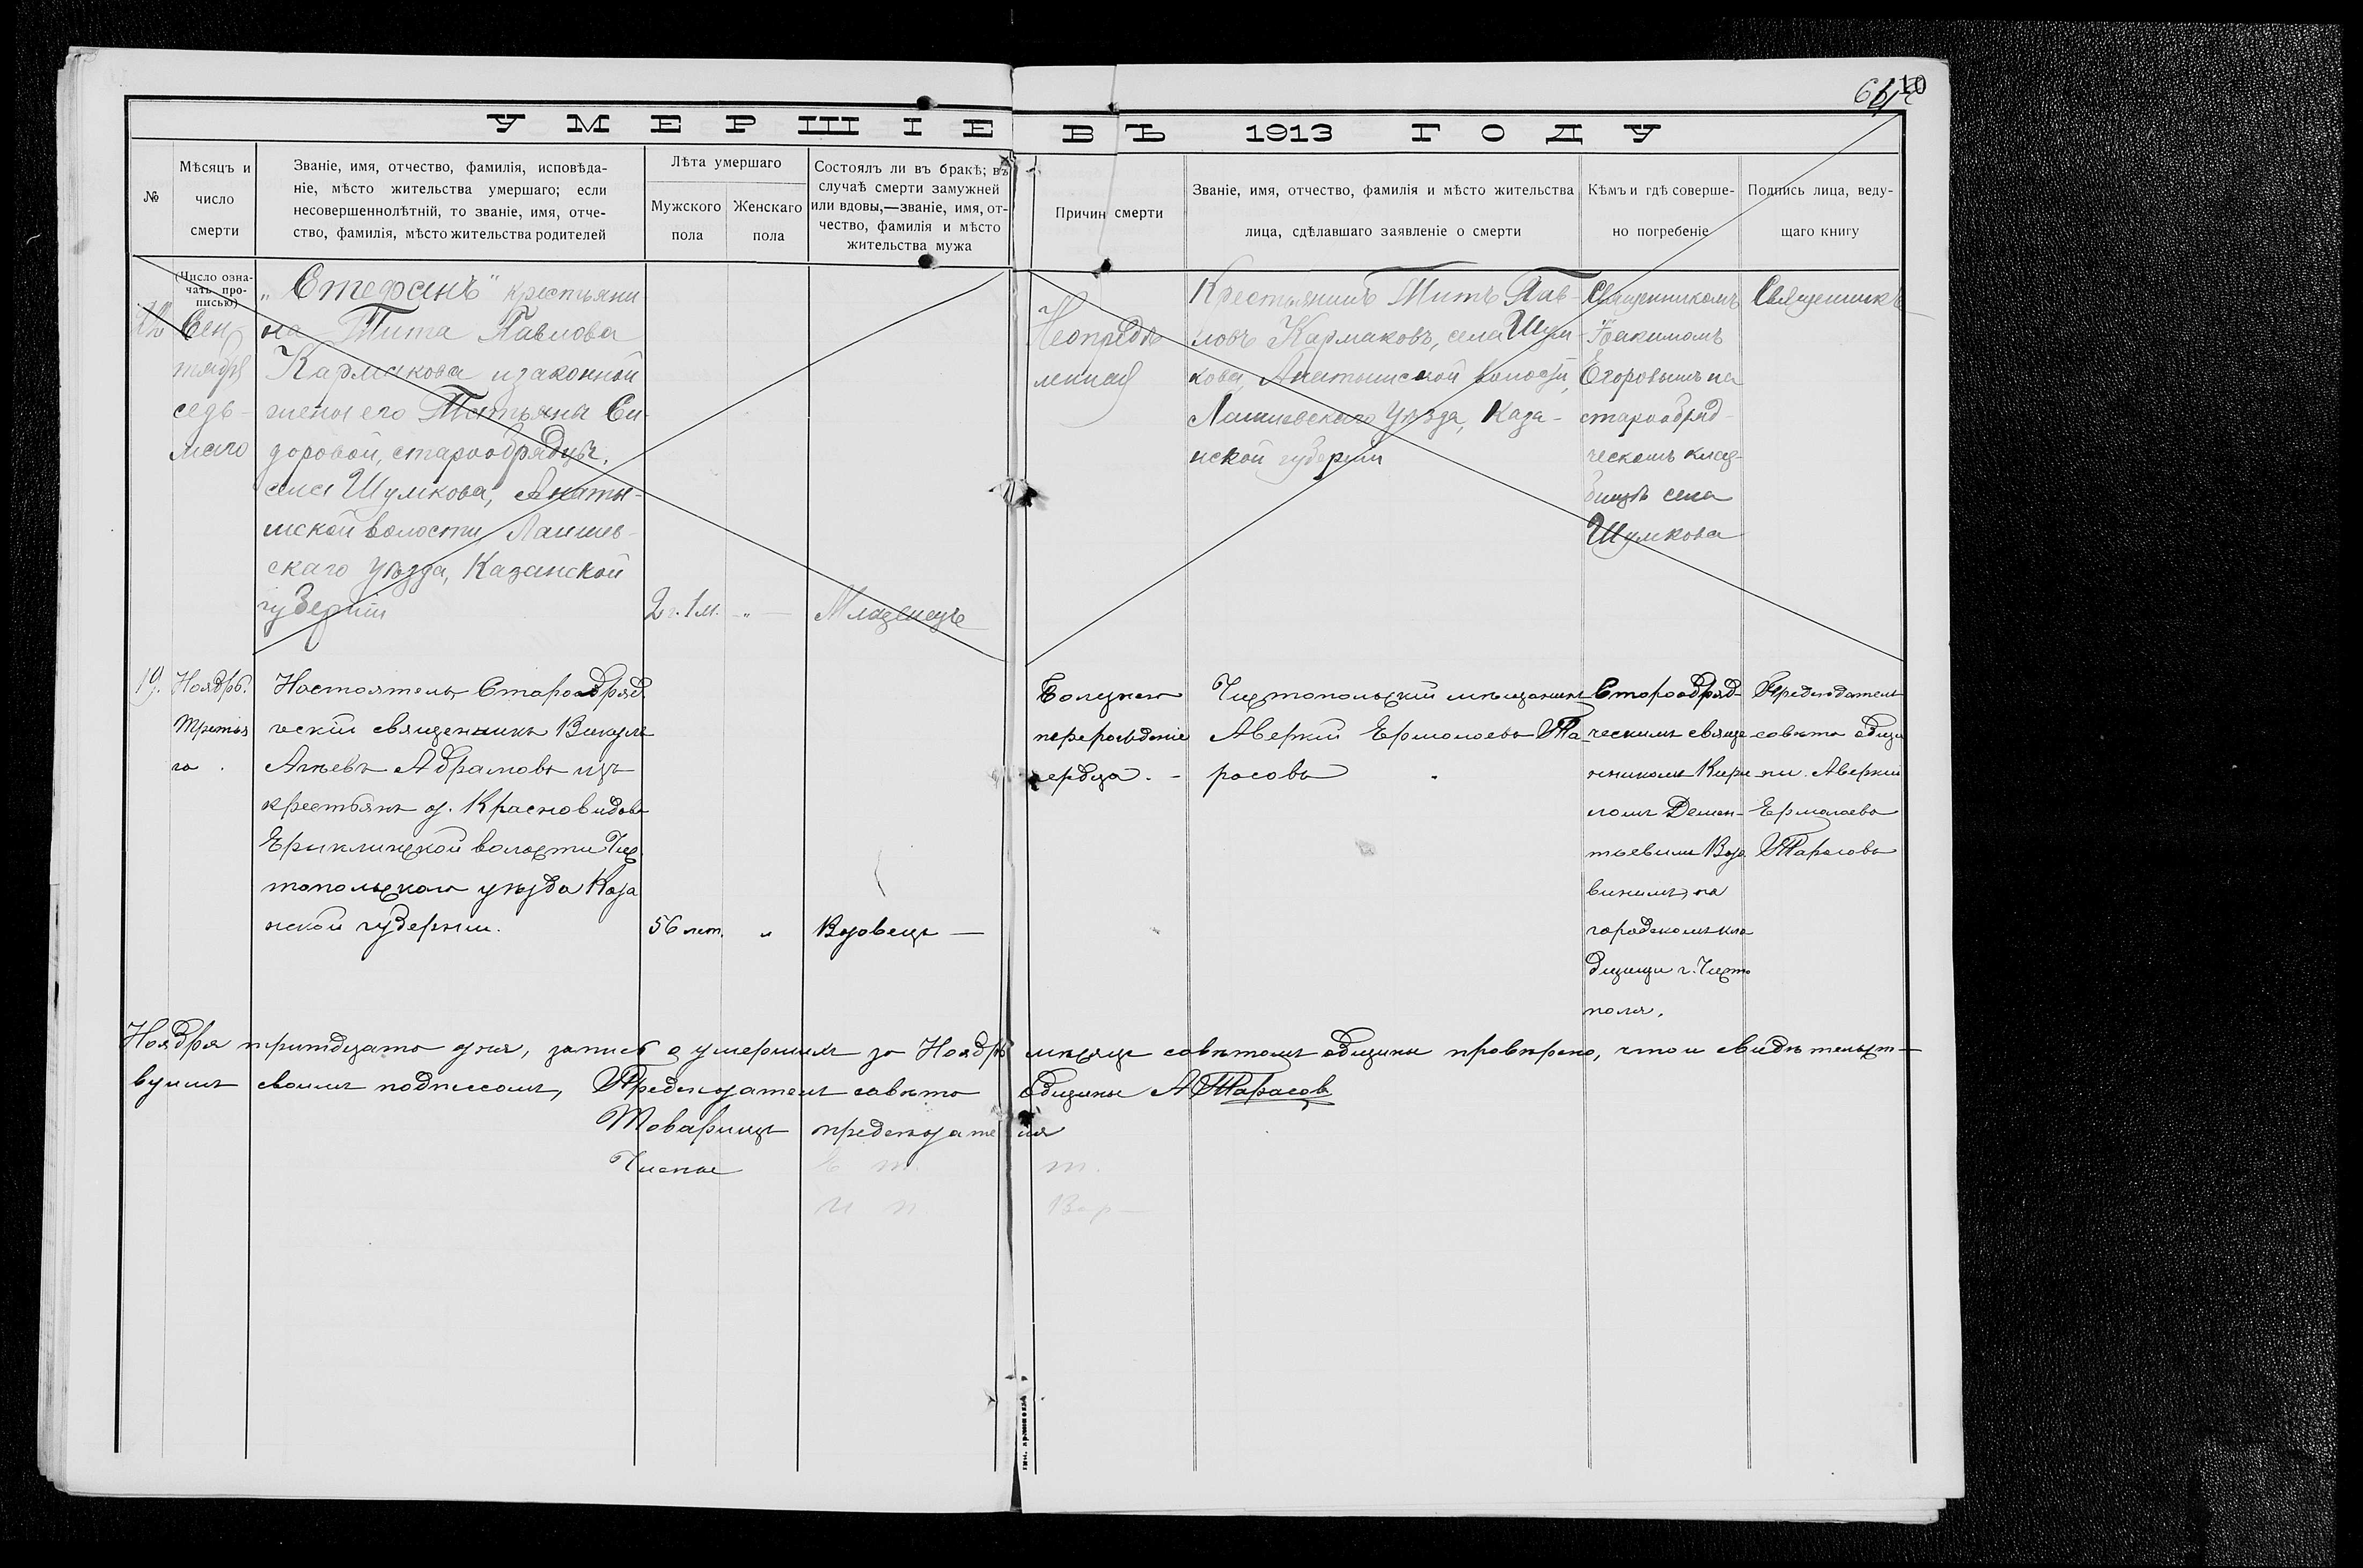 УМЕРШІЕ ВЪ 1913 ГОДУ
10
№
Мѣсяцъ и
число
смерти
Званіе, имя, отчество, фамилія, исповѣда-
ніе, мѣсто жительства умершаго; если
несовершеннолѣтній, то званіе, имя, отче-
ство, фамилія, мѣсто жительства родителей
Лѣта умершаго
Мужского
пола
Женскаго
пола
Состоялъ ли въ бракѣ; въ
случаѣ смерти замужней
или вдовы,—званіе, имя, от-
чество, фамилія и мѣсто
жительства мужа
Причин смерти
Званіе, имя, отчество, фамилія и мѣсто жительства
лица, сдѣлавшаго заявленіе о смерти
Кѣмъ и гдѣ соверше-
но погребеніе
Подпись лица, веду-
щаго книгу
(Число озна-
чать про-
писью)
Сен
тября
седь-
маго
„Стефанъ" крестьяни
на Тита Павлова
Кармакова и законной
жены его Татьяны Си-
доровой, старообрядцы,
села Шумкова, Анаты-
шской волости, Лаишев-
скаго уѣзда, Казанской
губерніи
2 г. 1 м. „ —
Младенецъ
Неопредѣ
ленная
Крестьянинъ Титъ Пав-
ловъ Кармаковъ, села Шум-
кова, Анатышской волости,
Лаишевскаго уѣзда, Каза-
нской губерніи
Священникомъ
Іоакимомъ
Егоровымъ на
старообряд-
ческомъ клад-
бищѣ села
Шумкова
Священникъ
19.
Ноябрь.
Третья
го.
Настоятель Старообряд
ческій священникъ
Абрамовъ изъ
крестьянъ д. Красновидова
Ерыклинской волости Чис
топольскаго уѣзда Каза
нской губерніи.
56 лет. „
Вдовецъ —
перерожденіе
сердца. -
Чистопольскій мещанинъ
Аверкій Ермолаевъ Та-
расовъ
Старообряд-
ческимъ свяще
нникомъ Кири
ломъ Демен-
тьевымъ
на
городскомъ кла
дбищи г. Чисто
поля.
Председатель
совѣта общи
ны Аверкій
Ермолаевъ
Тарасовъ
Ноября тритцато дня, запись о умершихъ за Ноябрь месяцъ совѣтомъ общины провѣрено, что и свидѣтельст-
вуимъ своимъ подписомъ, Председатель совѣта Общины А Тарасов
Товарищъ председателя
Члены